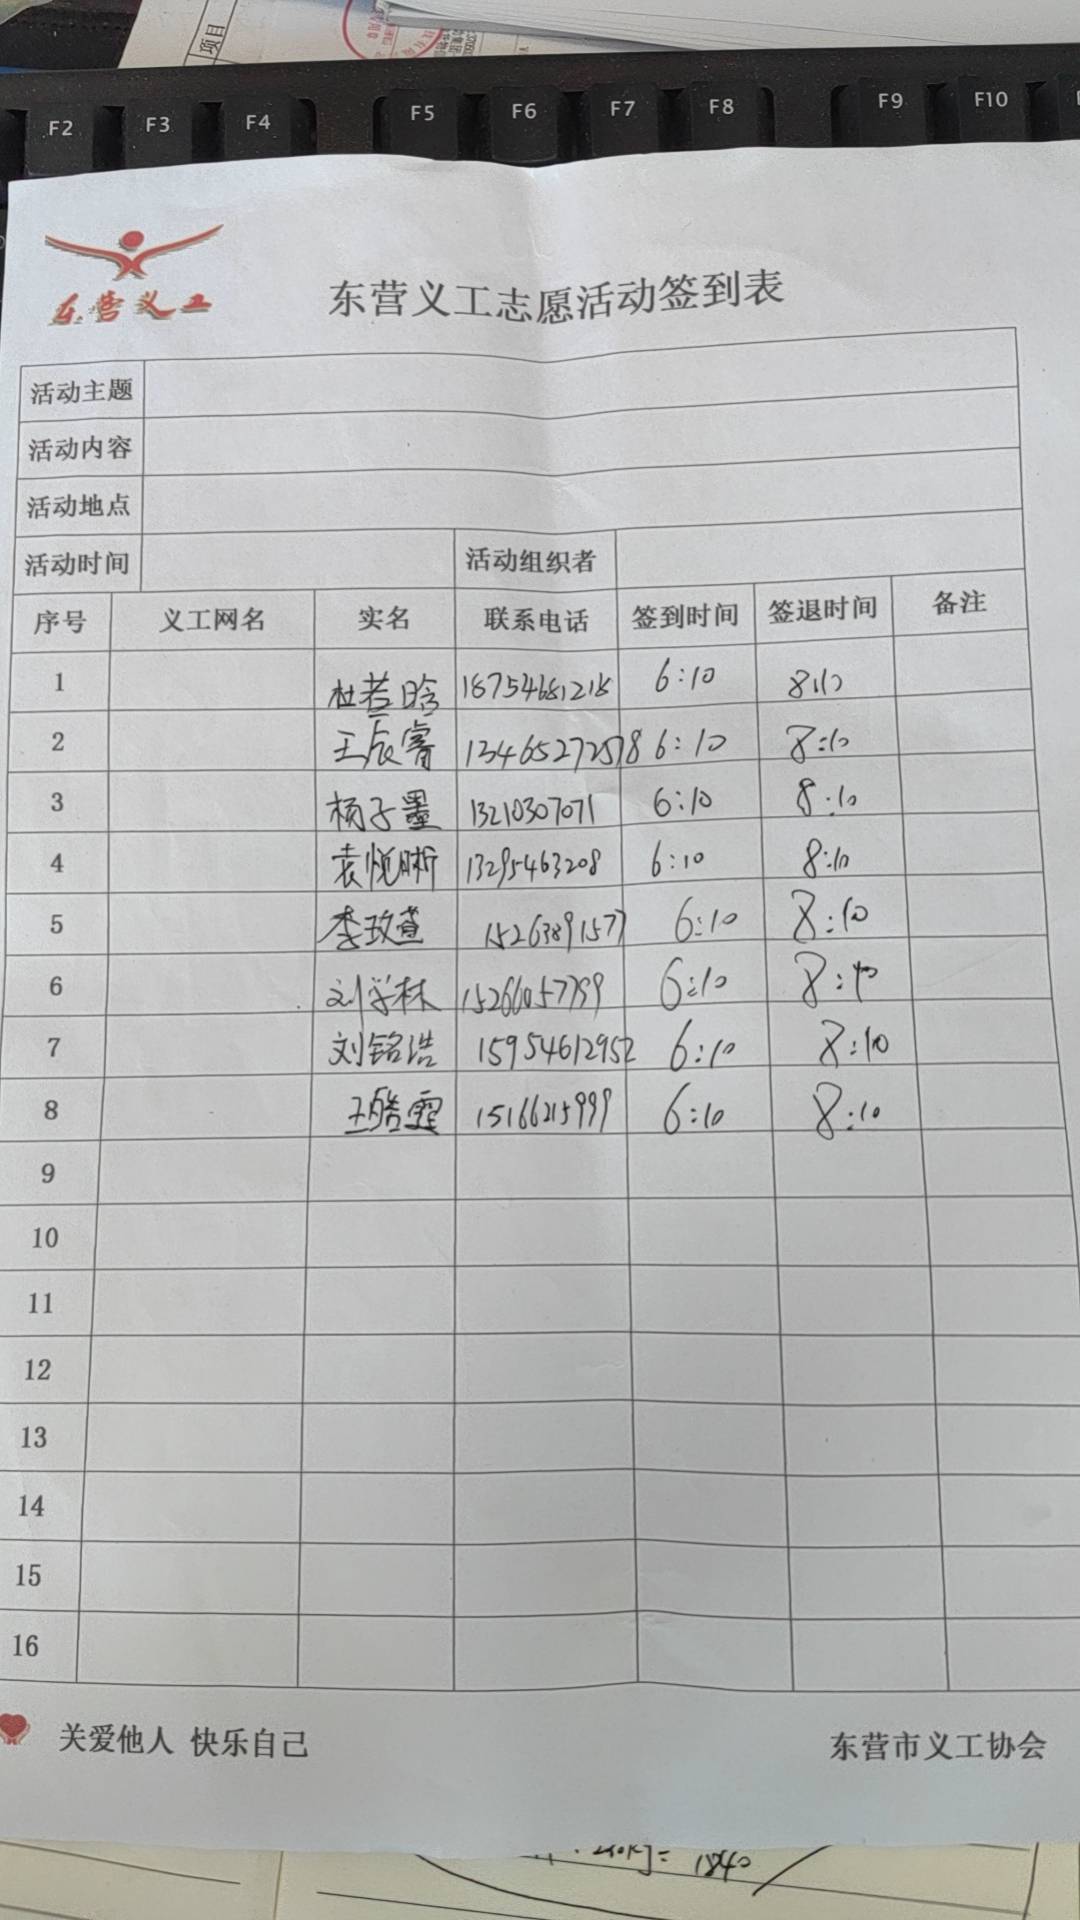 项目
F2 F3 F4 F5 F6 F7 F8 F9 F10
东营义工
东营义工志愿活动签到表
活动主题
活动内容
活动地点
活动时间 活动组织者
序号 义工网名 实名 联系电话 签到时间 签退时间 备注
1 杜若晗 18754681218 6:10 8:10
2 王辰睿 13465272578 6:10 8:10
3 杨子墨 13210307071 6:10 8:10
4 袁悦晰 13295463208 6:10 8:10
5 李玫萱 15263891577 6:10 8:10
6 刘学林 15266057799 6:10 8:10
7 刘铭浩 15954612952 6:10 8:10
8 王皓霆 15166215999 6:10 8:10
9
10
11
12
13
14
15
16
关爱他人 快乐自己 东营市义工协会
1840